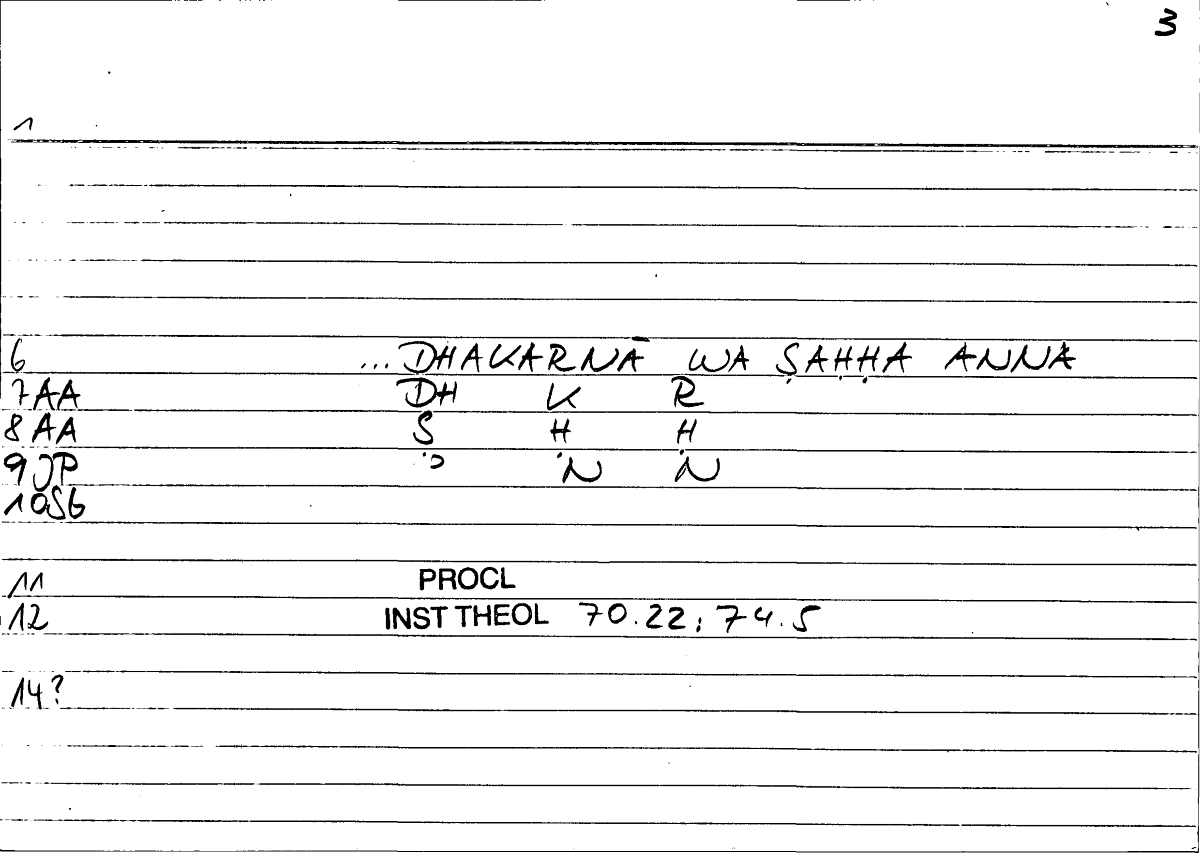 3
1
6 ... DHAKARNĀ WA ṢAḤḤA ANNA
7AA DH K R
8AA Ṣ Ḥ Ḥ
9JP ʾ N N
10SG
11 PROCL
12 INST THEOL 70.22; 74.5
14?